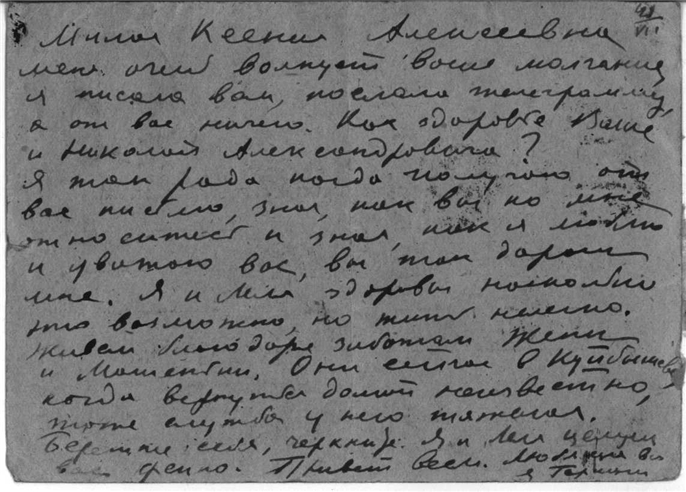 42
VII
Милая Ксения Алексеевна
меня очень волнует ваше молчание,
я писала вам, послала телеграмму,
а от вас ничего. Как здоровье Ваше
и Николая Александровича?
Я так рада когда получаю от
вас письмо, зная, как вы ко мне
относитесь и зная, как я люблю
и уважаю вас, вы так дороги
мне. Я и Леля здоровы насколько
это возможно, но жить нелегко.
Живем благодаря заботам Жени
и Они сейчас в Куйбышеве
когда вернутся домой неизвестно,
тоже служба у него тяжелая.
Берегите себя, черкните. Я и Леля целуем
вас Привет всем. Любящая вас